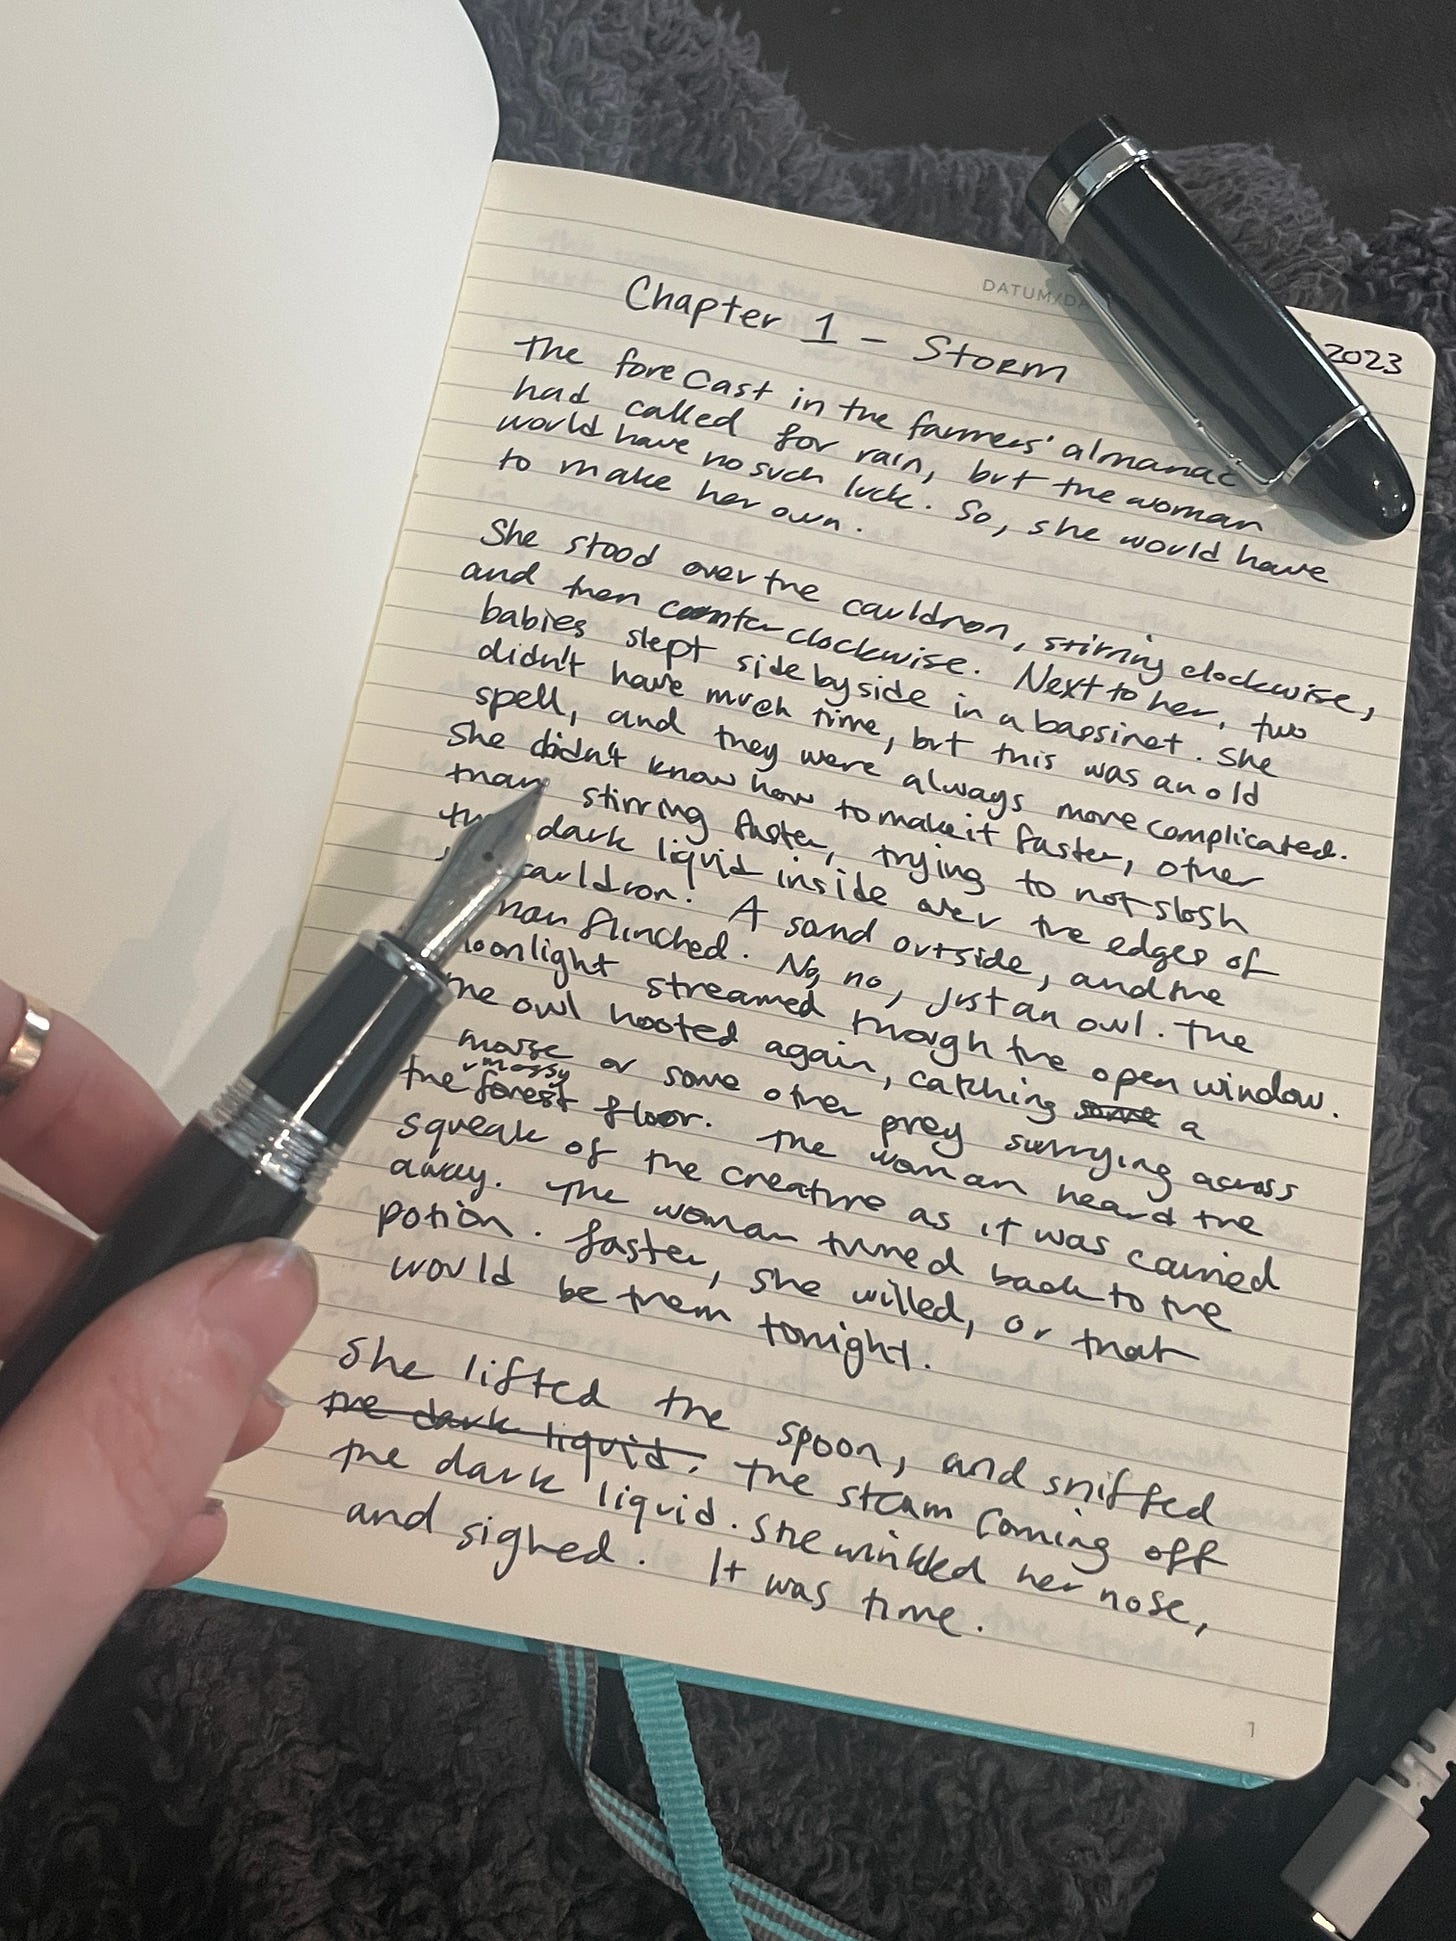 DATUM/DA
2023
Chapter 1 - Storm
The forecast in the farmers' almanac
had called for rain, but the woman
would have no such luck. So, she would have
to make her own.
She stood over the cauldron, stirring clockwise,
and then counter clockwise. Next to her, two
babies slept side by side in a bassinet. She
didn't have much time, but this was an old
spell, and they were always more complicated.
She didn't know how to make it faster, other
than stirring faster, trying to not slosh
the dark liquid inside over the edges of
cauldron. A sound outside, and the
man flinched. No, no, just an owl. The
moonlight streamed through the open window.
The owl hooted again, catching some a
mouse or some other prey scurrying across
mossy
the forest floor. The woman heard the
squeak of the creature as it was carried
away. The woman turned back to the
potion. Faster, she willed, or that
would be them tonight.
She lifted the spoon, and sniffed
the dark liquid. The steam coming off
the dark liquid. She winkled her nose,
and sighed. It was time.
1